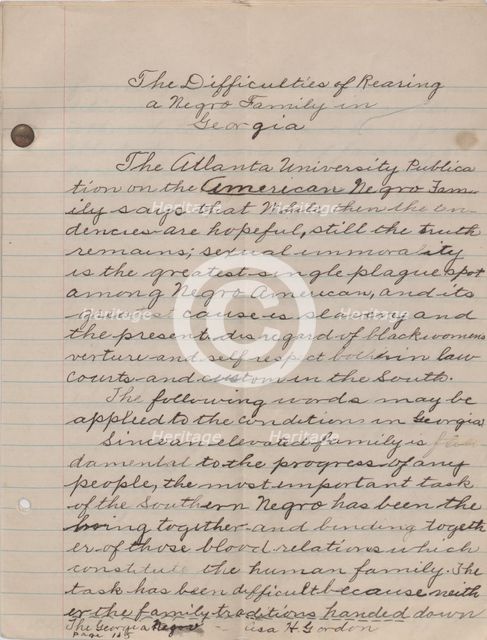 The Difficulties of Rearing
a Negro Family in
Georgia
The Atlanta University Publica
tion on the American Negro Fam-
ily says that While then the ten-
dencies are hopeful, still the truth
remains; sexual immorality
is the greatest single plague spot
among Negro American, and its
greatest cause is slavery and
the present disregard of black womens
verture and self respect both in law
courts and custom in the South.
The following words may be
applied to the conditions in Georgia
Since an elevated family is
damental to the progress of any
people, the most important task
of the Southern Negro has been the
bring together and binding togeth
er of those blood relations which
constitute the human family. The
task has been difficult because neith
er the family traditions handed down
The Georgia Negro - - Asa H Gordon
Page 145
Heritage
Heritage
Heritage
Heritage
Heritage
Heritage
Images
Images
Images
Images
Images
Images
©